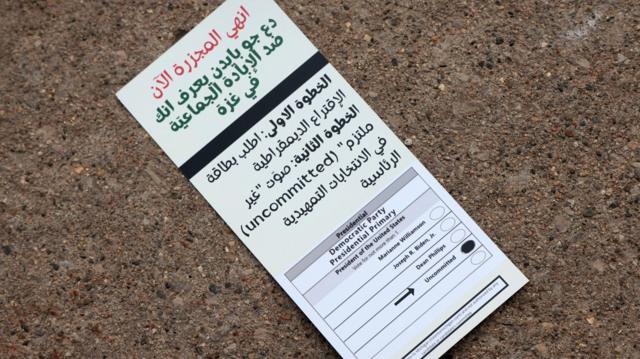 انهي المجزرة الآن
دع جو بايدن يعرف انك
ضد الإبادة الجماعية
في غزة
الخطوة الاولى: اطلب بطاقة
الإقتراع الديمقراطية
الخطوة الثانية: صوّت "غير
ملتزم" (uncommitted)
في الانتخابات التمهيدية
الرئاسية
Presidential
Democratic Party
Presidential Primary
President of the United States
Vote for not more than 1
Marianne Williamson
Joseph R. Biden, Jr.
Dean Phillips
Uncommitted